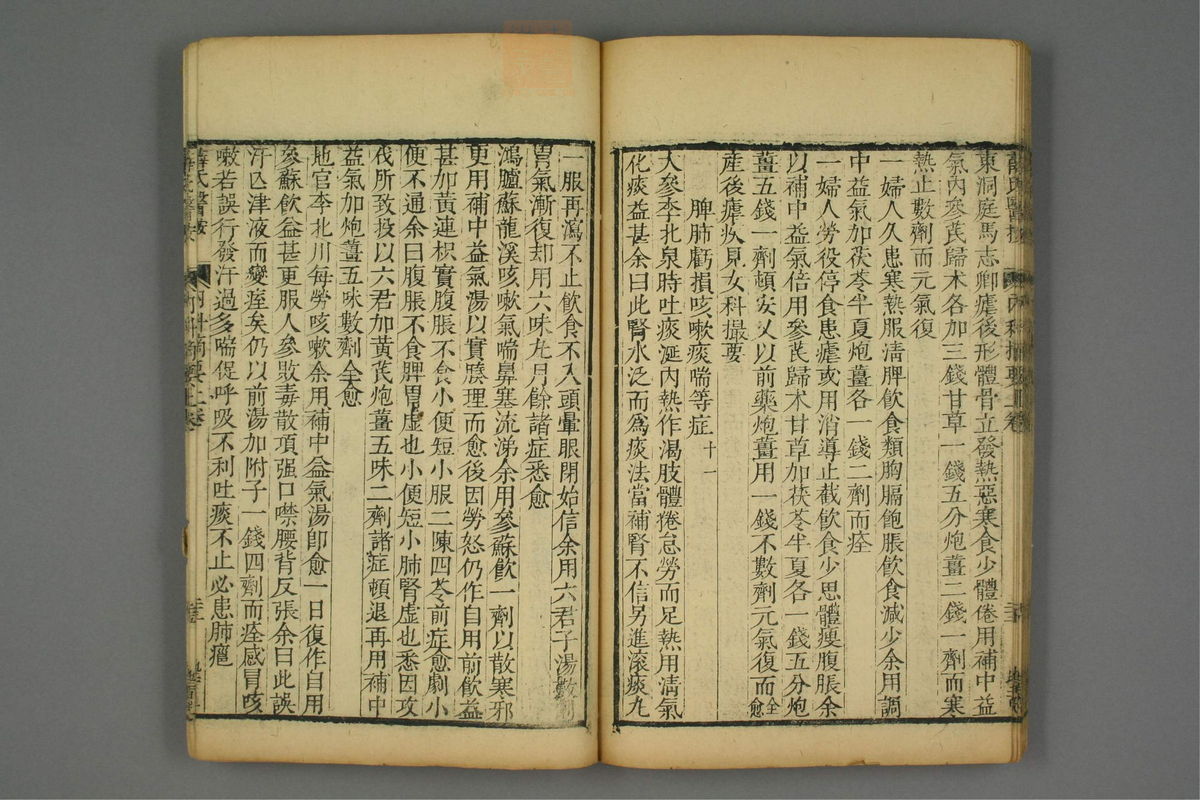 東洞庭馬志卿瘧後形體骨立發熱惡寒食少體倦用補中益
氣內參芪歸术各加三錢甘草一錢五分炮薑二錢一劑而寒
熱止數劑而元氣復
一婦人久患寒熱服清脾飲食類胸膈飽脹飲食減少余用調
中益氣加茯苓半夏炮薑各一錢二劑而痊
一婦人勞役停食患瘧或用消導止截飲食少思體瘦腹脹余
以補中益氣倍用參芪歸术甘草加茯苓半夏各一錢五分炮
薑五錢一劑頓安又以前藥炮薑用一錢不數劑元氣復而全愈
產後瘧疾見女科撮要
脾肺虧損咳嗽痰喘等症 十一
大參李北泉時吐痰涎內熱作渴肢體倦怠勞而足熱用清氣
化痰益甚余曰此腎水泛而爲痰法當補腎不信另進滚痰丸
一服再瀉不止飲食不入頭暈眼閉始信余用六君子湯數劑
胃氣漸復却用六味丸月餘諸症悉愈
鴻臚蘇龍溪咳嗽氣喘鼻塞流涕余用參蘇飲一劑以散寒邪
更用補中益氣湯以實腠理而愈後因勞怒仍作自用前飲益
甚加黃連枳實腹脹不食小便短小服二陳四苓前症愈劇小
便不通余曰腹脹不食脾胃虛也小便短小肺腎虛也悉因攻
伐所致投以六君加黃芪炮薑五味二劑諸症頓退再用補中
益氣加炮薑五味數劑全愈
地官李北川每勞咳嗽余用補中益氣湯卽愈一日復作自用
參蘇飲益甚更服人參敗毒散項强口噤腰背反張余曰此誤
汗亾津液而變痙矣仍以前湯加附子一錢四劑而痊感冒咳
嗽若誤行發汗過多喘促呼吸不利吐痰不止必患肺癰
薛氏醫按 內科摘要上卷